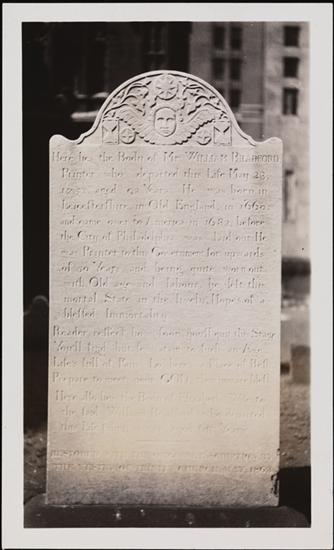 Here lies the Body of Mr. WILLIAM BRADFORD
Printer, who departed this Life May 23,
1752, aged 92 Years. He was born in
Leicestershire, in Old England, in 1660.
and came over to America in 1682, before
the City of Philadelphia was laid out. He
was Printer to this Government for upwards
of 50 Years and being quite worn out
with Old age and labour, he left this
mortal State in the lively Hopes of a
blessed Immortality.
Reader, reflect how soon you'll quit this Stage
You'll find but few atain to such an Age
Life's full of Pain. Lo here's a Place of Rest
Prepare to meet your GOD, then you are blest
Here also lies the Body of Elizabeth Wife to
the said William Bradford who departed
this Life aged Years
RESTORED WITH THE ORIGINAL INSCRIPTION BY
THE VESTRY OF TRINITY CHURCH MAY 1863